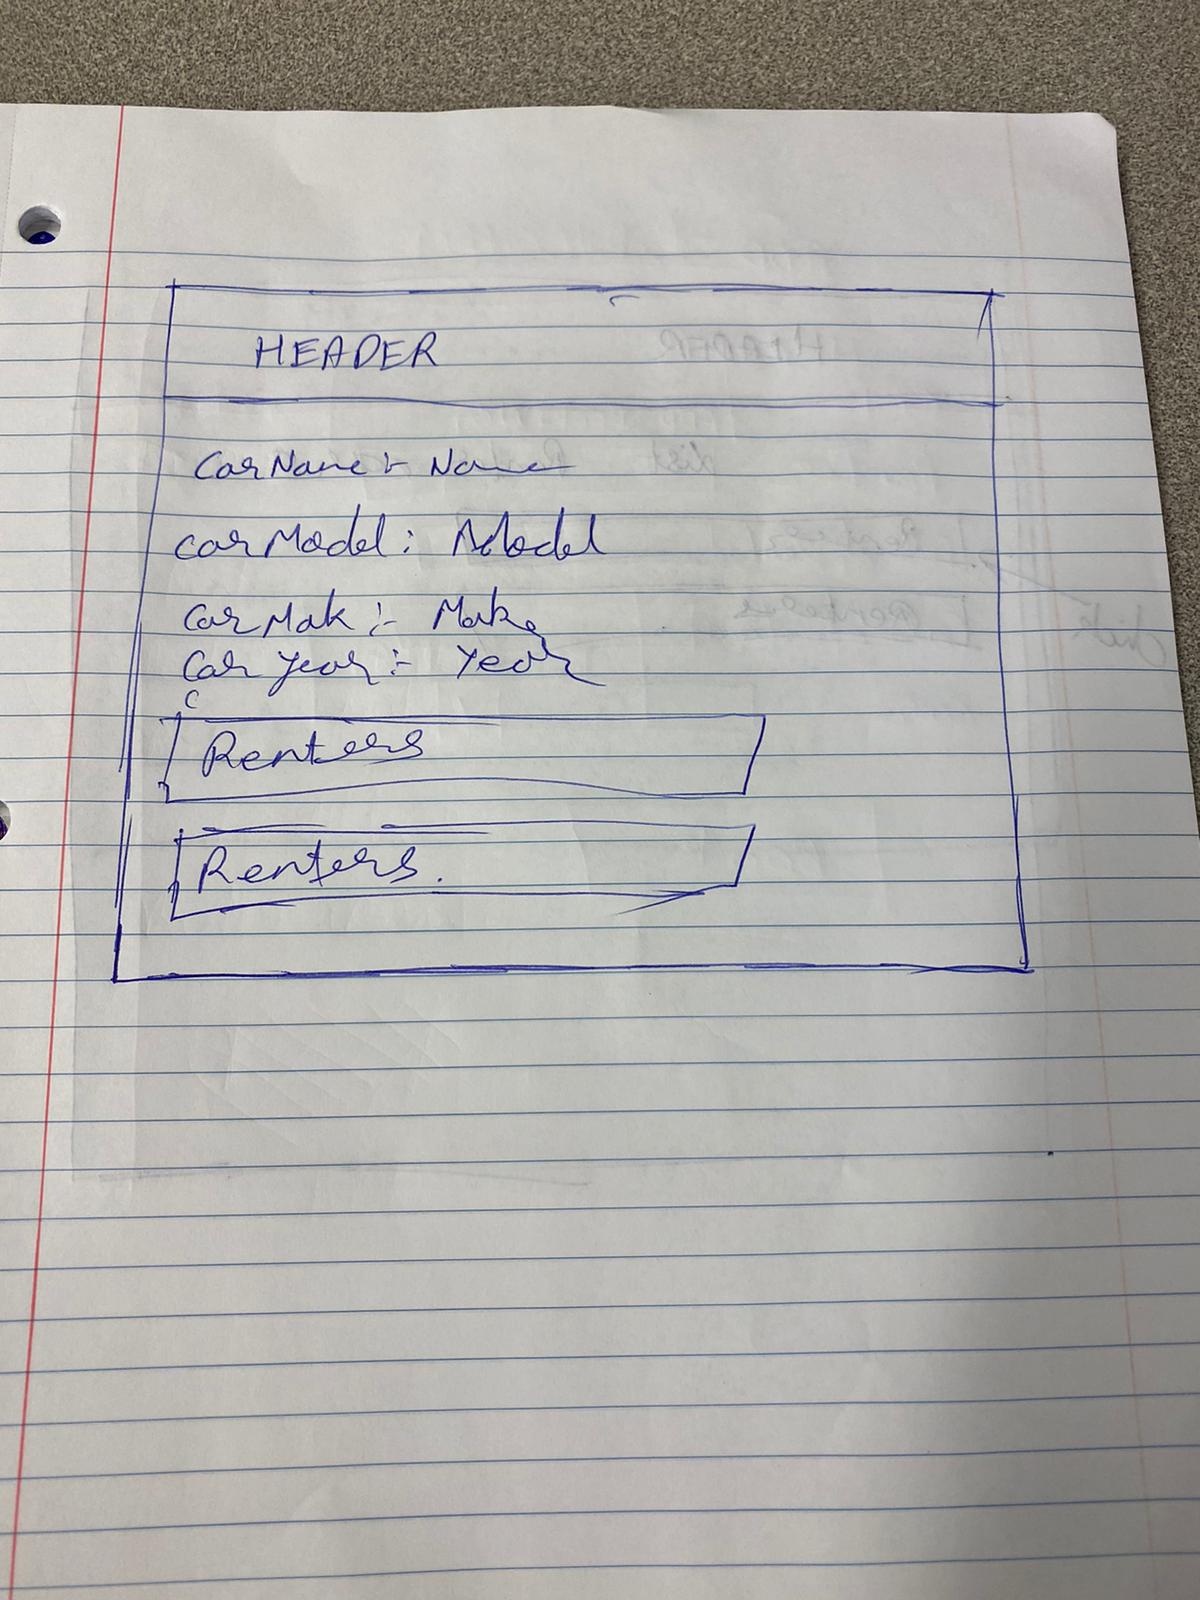 HEADER
CarName :- Name
carModel : Model
Car Mak :- Make
Car year :- Year
C
Renters
Renters.